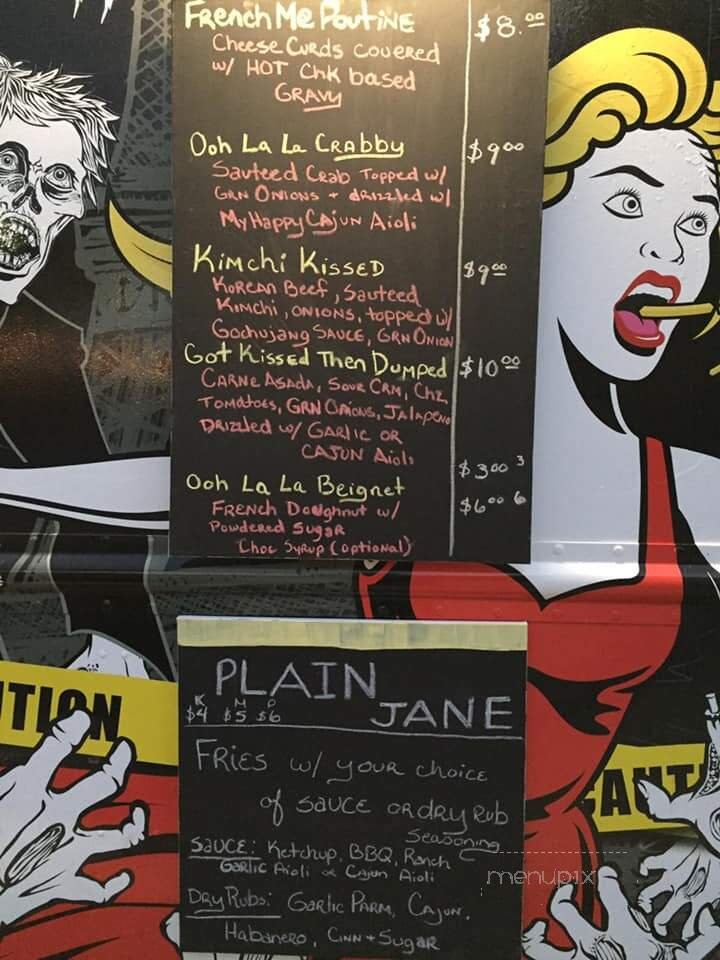 French Me Poutine $8.00
Cheese Curds covered
w/ HOT Chk based
GRAVY
Ooh La La CRABBY $9.00
Sauteed Crab Topped w/
GRN ONIONS + drizzled w/
My Happy Cajun Aioli
Kimchi Kissed $9.00
Korean Beef, Sauteed
Kimchi, onions, topped w/
Gochujang Sauce, GRN ONION
Got Kissed Then Dumped $10.00
CARNE ASADA, Sour CRM, Chz,
Tomatoes, GRN Onions, Jalapeno
Drizzled w/ GARLIC OR
CAJUN Aioli
$3.00 3
Ooh La La Beignet $6.00 6
FRENCH Doughnut w/
Powdered Sugar
Choc Syrup (optional)
PLAIN
K M P
$4 $5 $6
JANE
FRIES w/ your choice
of sauce or dry rub
Seasoning
SAUCE: Ketchup, BBQ, Ranch
Garlic Aioli or Cajun Aioli
Dry Rubs: Garlic Parm, Cajun,
Habanero, Cinn + Sugar
TION
CAUT
menupix